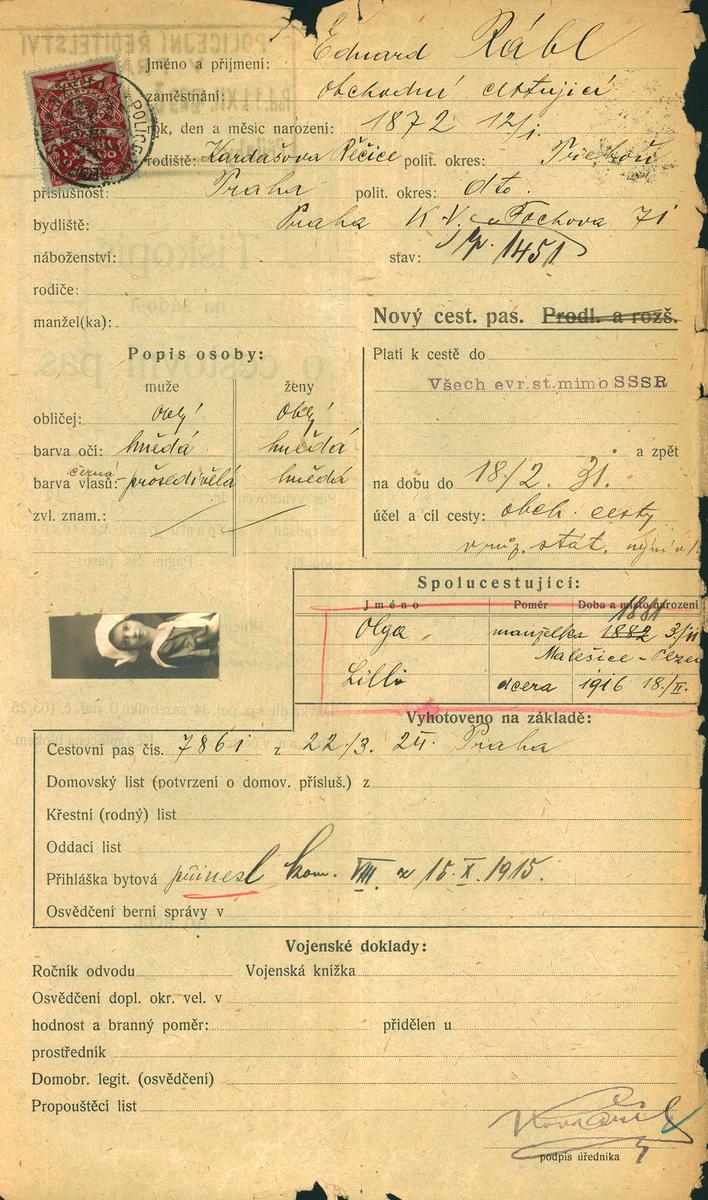 POLICEJNÍ ŘEDITELSTVÍ
Jméno a přijmení: Eduard Rábl
zaměstnání: obchodní cestující
rok, den a měsíc narození: 1872 12/I.
rodiště: Kardašova Řečice polit. okres:
příslušnost: Praha polit. okres: dto.
bydliště: Praha K. V. Fochova 71
čp. 1451
náboženství: stav:
rodiče:
manžel(ka):
Nový cest. pas. Prodl. a rozš.
Popis osoby:
muže ženy
obličej: obly obly
barva očí: hnědá hnědá
černá
barva vlasů: prošedivělá hnědá
zvl. znam.:
Platí k cestě do
Všech evr. st. mimo SSSR
a zpět
na dobu do 18/2. 31.
účel a cíl cesty: obch. cesty
v růz. stát.
Spolucestující:
Jméno Poměr Doba a místo narození
1881
Olga manželka 1882 3/II
Malešice - Plzeň
Lilli dcera 1916 18/II.
Vyhotoveno na základě:
Cestovní pas čís. 7861 z 22/3. 24. Praha
Domovský list (potvrzení o domov. přísluš.) z
Křestní (rodný) list
Oddací list
Přihláška bytová přinesl kom. VIII z 15. X. 1915.
Osvědčení berní správy v
Vojenské doklady:
Ročník odvodu Vojenská knížka
Osvědčení dopl. okr. vel. v
hodnost a branný poměr: přidělen u
prostředník
Domobr. legit. (osvědčení)
Propouštěcí list
podpis úředníka